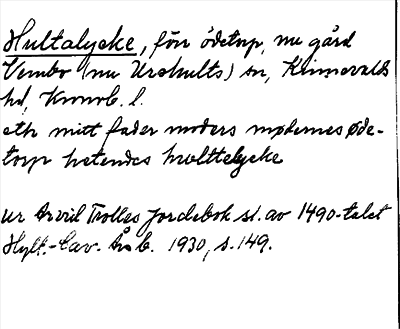 Hultalycke, förr ödetorp, nu gård
Vembo (nu Urshults) sn, Kinnevalds
hd, Kronob. l.
eth mitt fader moders mødernes øde-
torp hetendes hwlttelycke
ur Arvid Trolles jordebok sl. av 1490-talet
Hylt.-Cav. Årsb. 1930, s. 149.